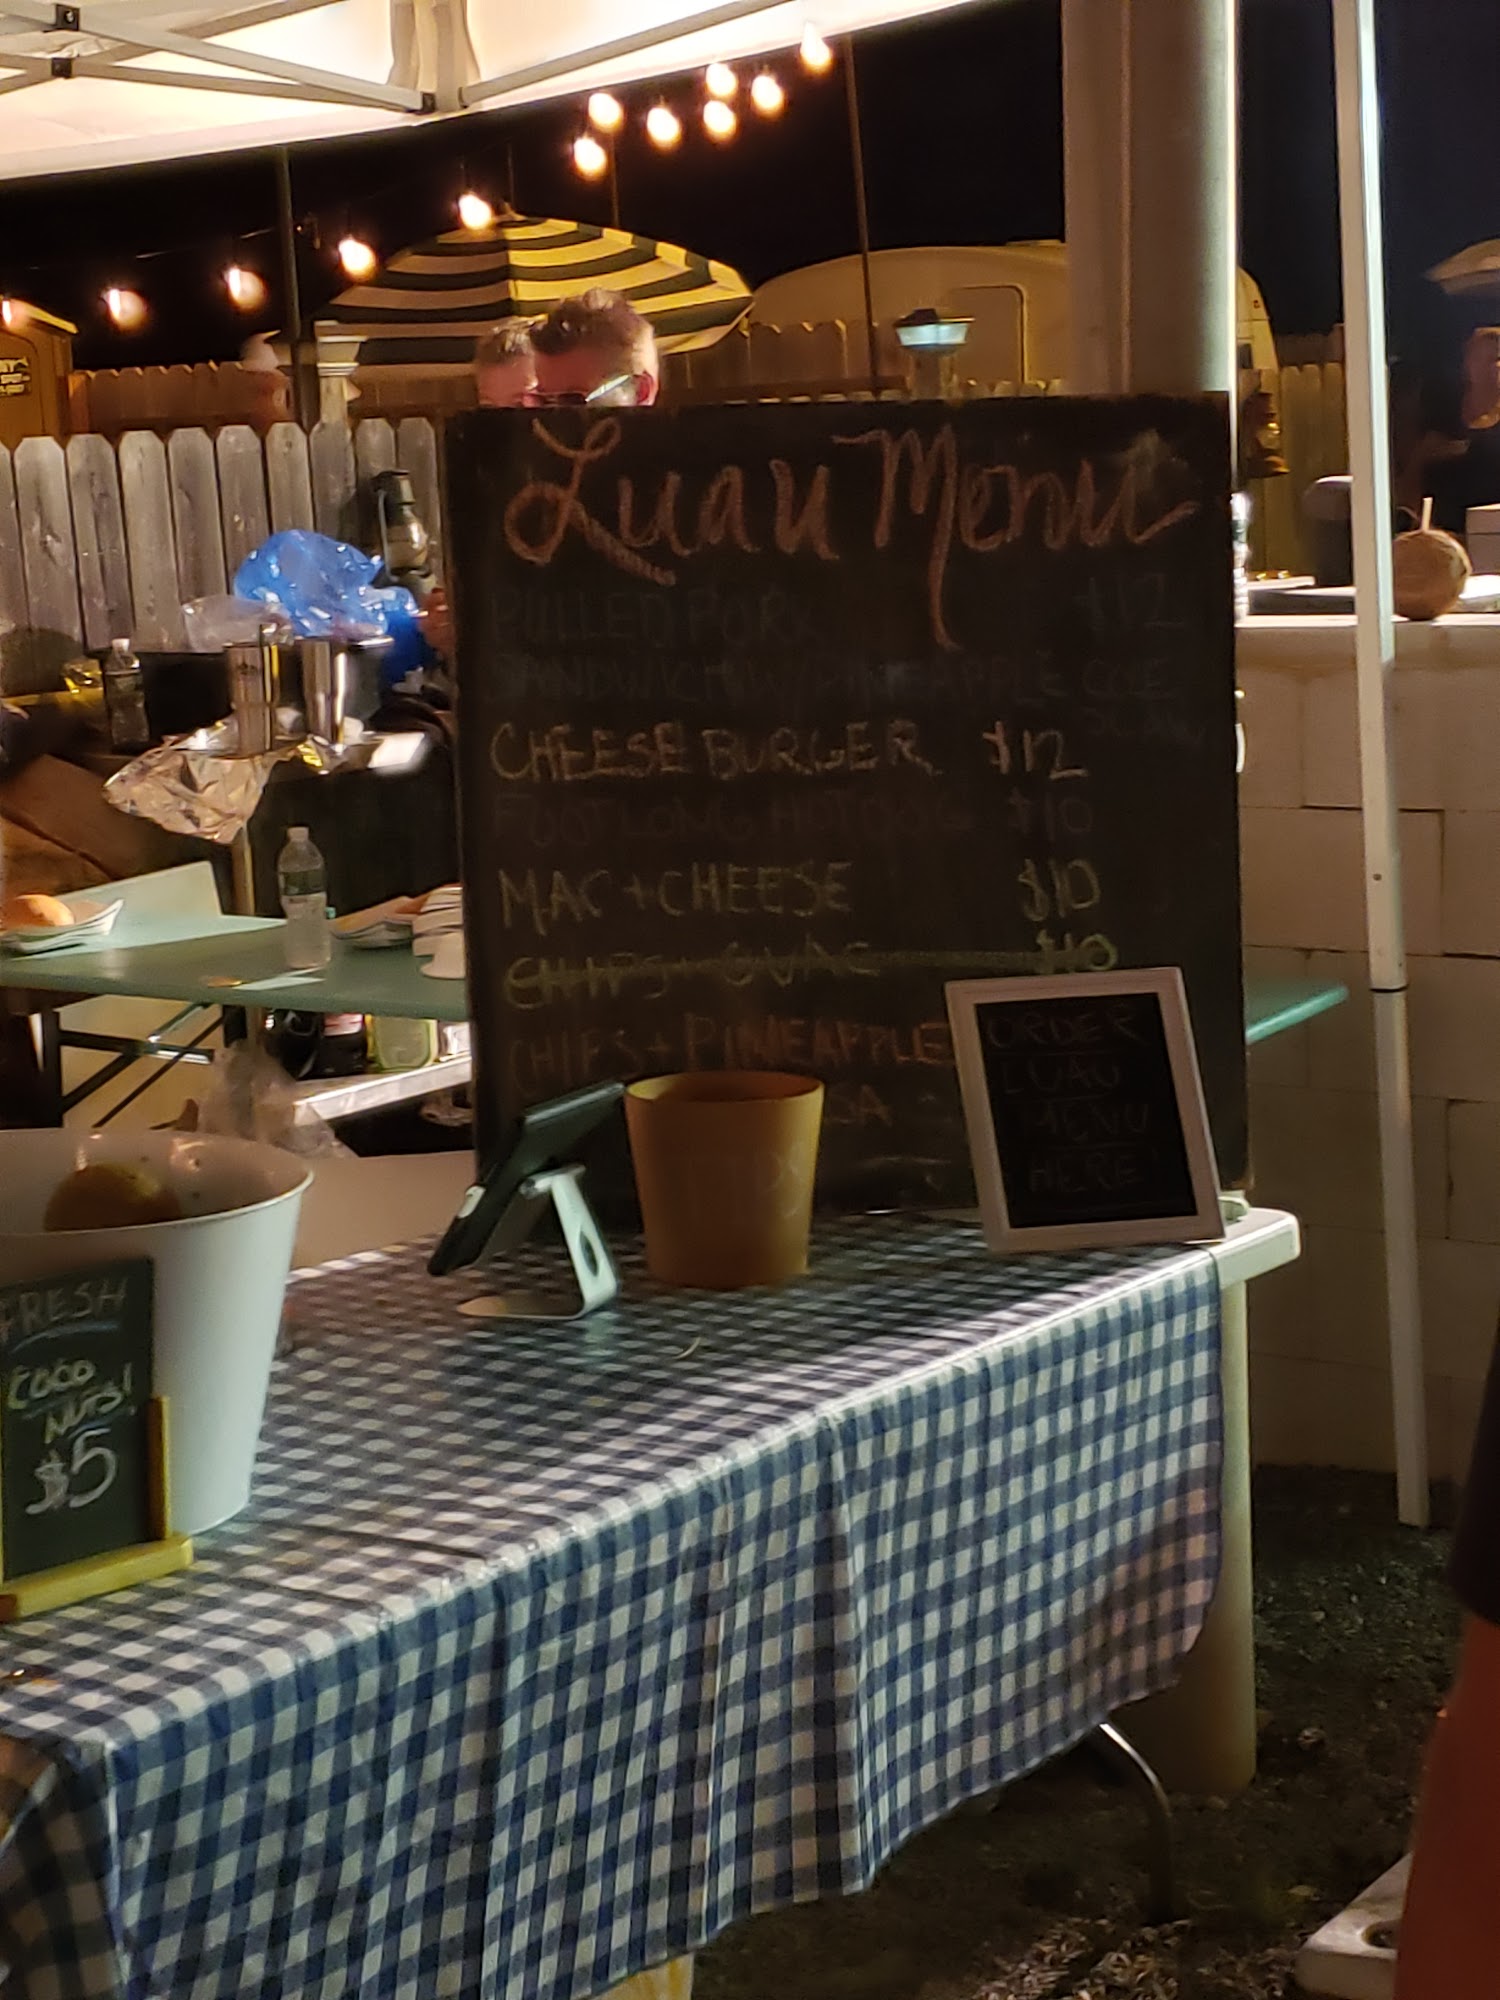 Luau Menu
PULLED PORK $12
SANDWICH W/ PINEAPPLE COLE
SLAW
CHEESE BURGER $12
FOOT LONG HOT DOG $10
MAC + CHEESE $10
CHIPS + GUAC $10
CHIPS + PINEAPPLE
ORDER
LUAU
MENU
HERE
FRESH
COCO
NUTS!
$5